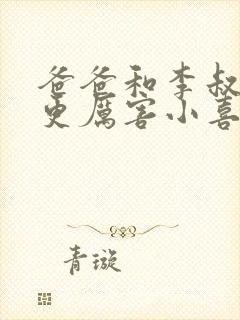 爸爸和李叔
更厲害小喜
青璇